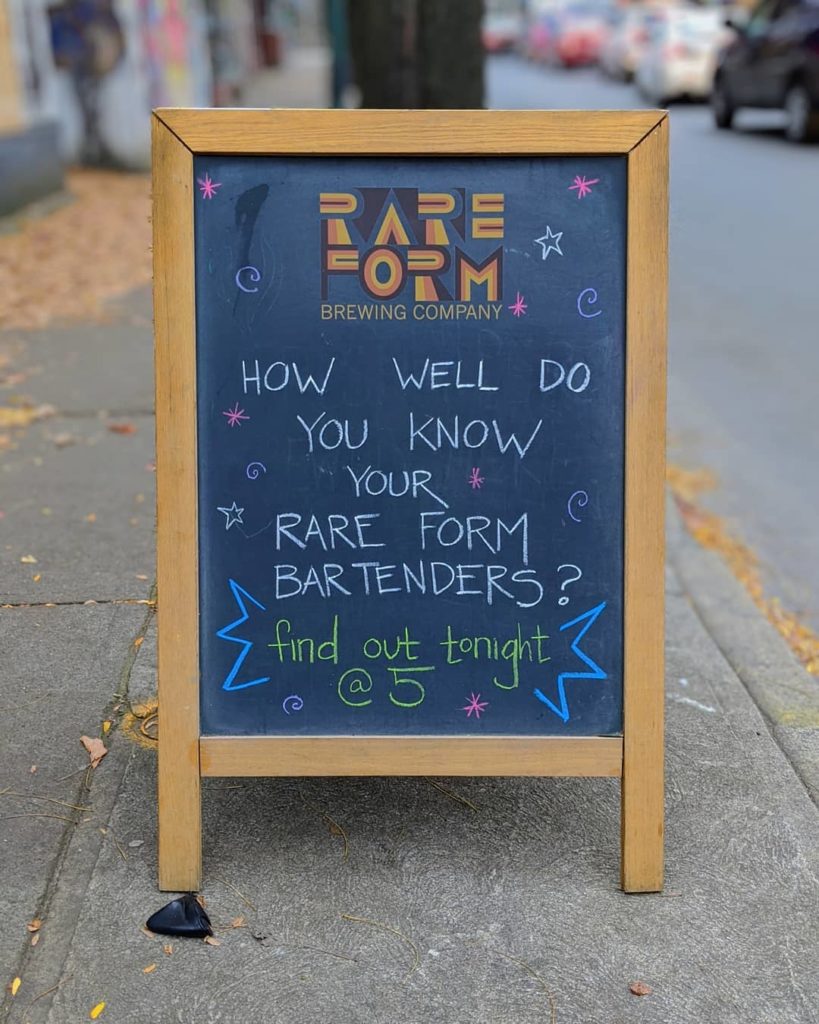 RARE
FORM
BREWING COMPANY
HOW WELL DO
YOU KNOW
YOUR
RARE FORM
BARTENDERS?
find out tonight
@ 5